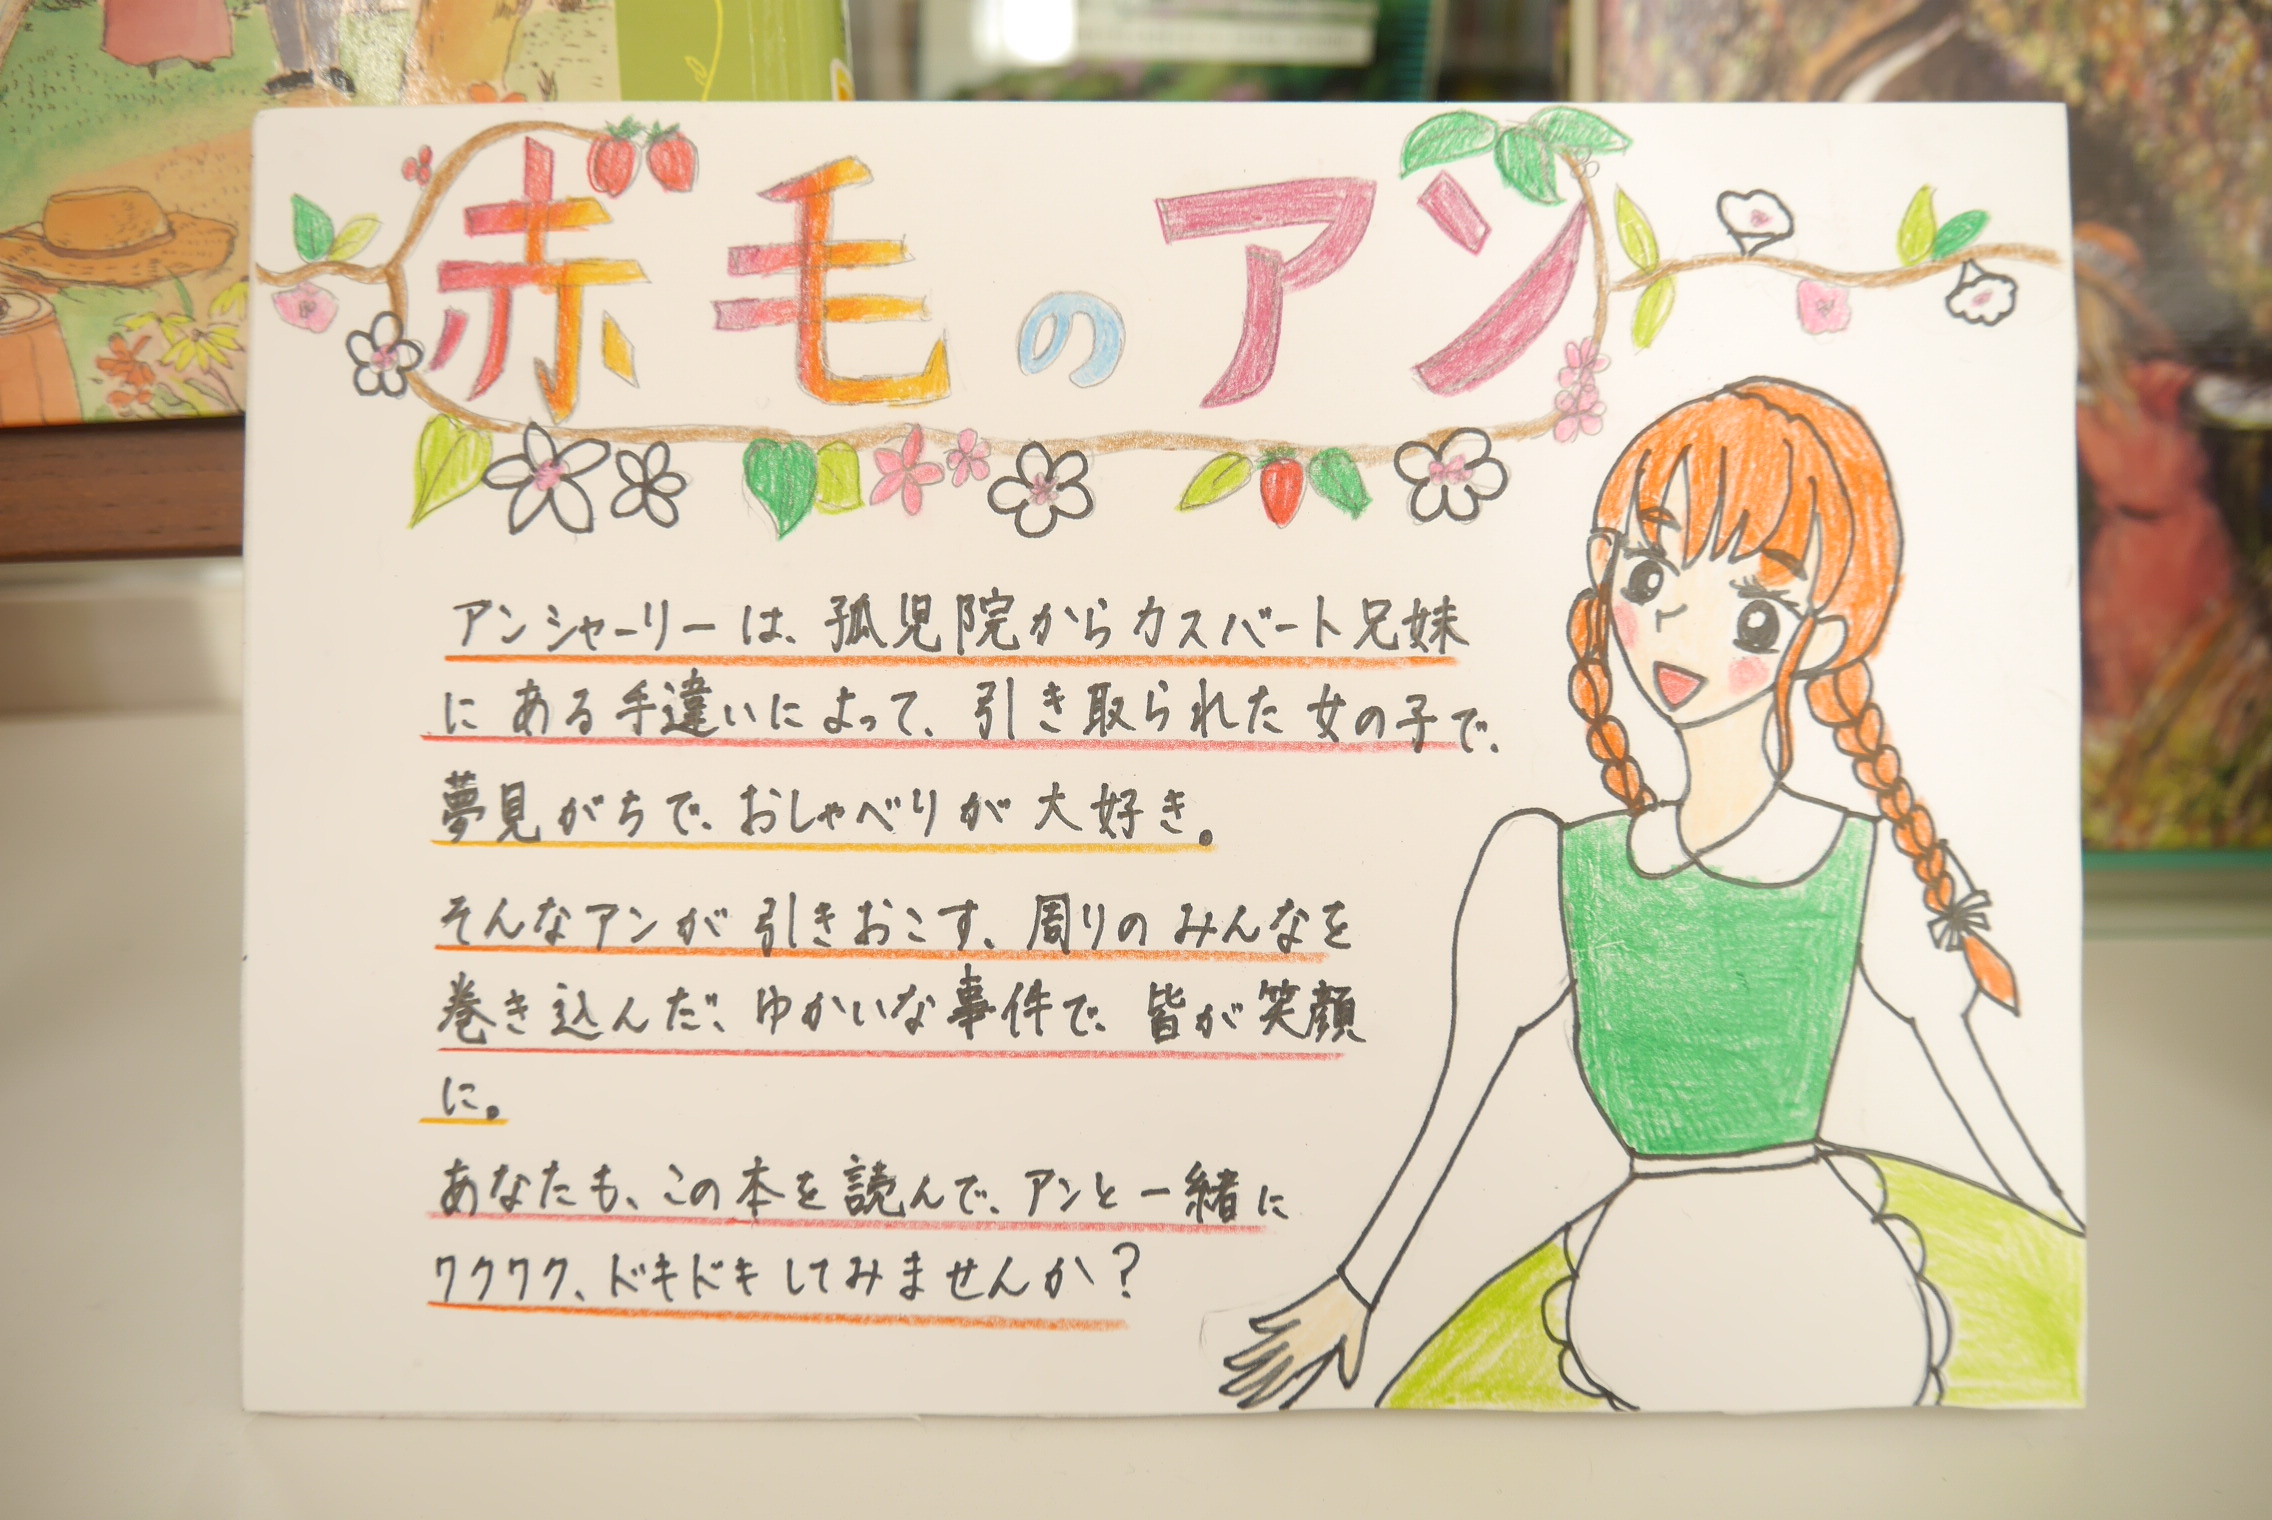 赤毛のアン
アンシャーリーは、孤児院からカスバート兄妹
にある手違いによって、引き取られた女の子で、
夢見がちで、おしゃべりが大好き。
そんなアンが引きおこす、周りのみんなを
巻き込んだ、ゆかいな事件で、皆が笑顔
に。
あなたも、この本を読んで、アンと一緒に
ワクワク、ドキドキしてみませんか?